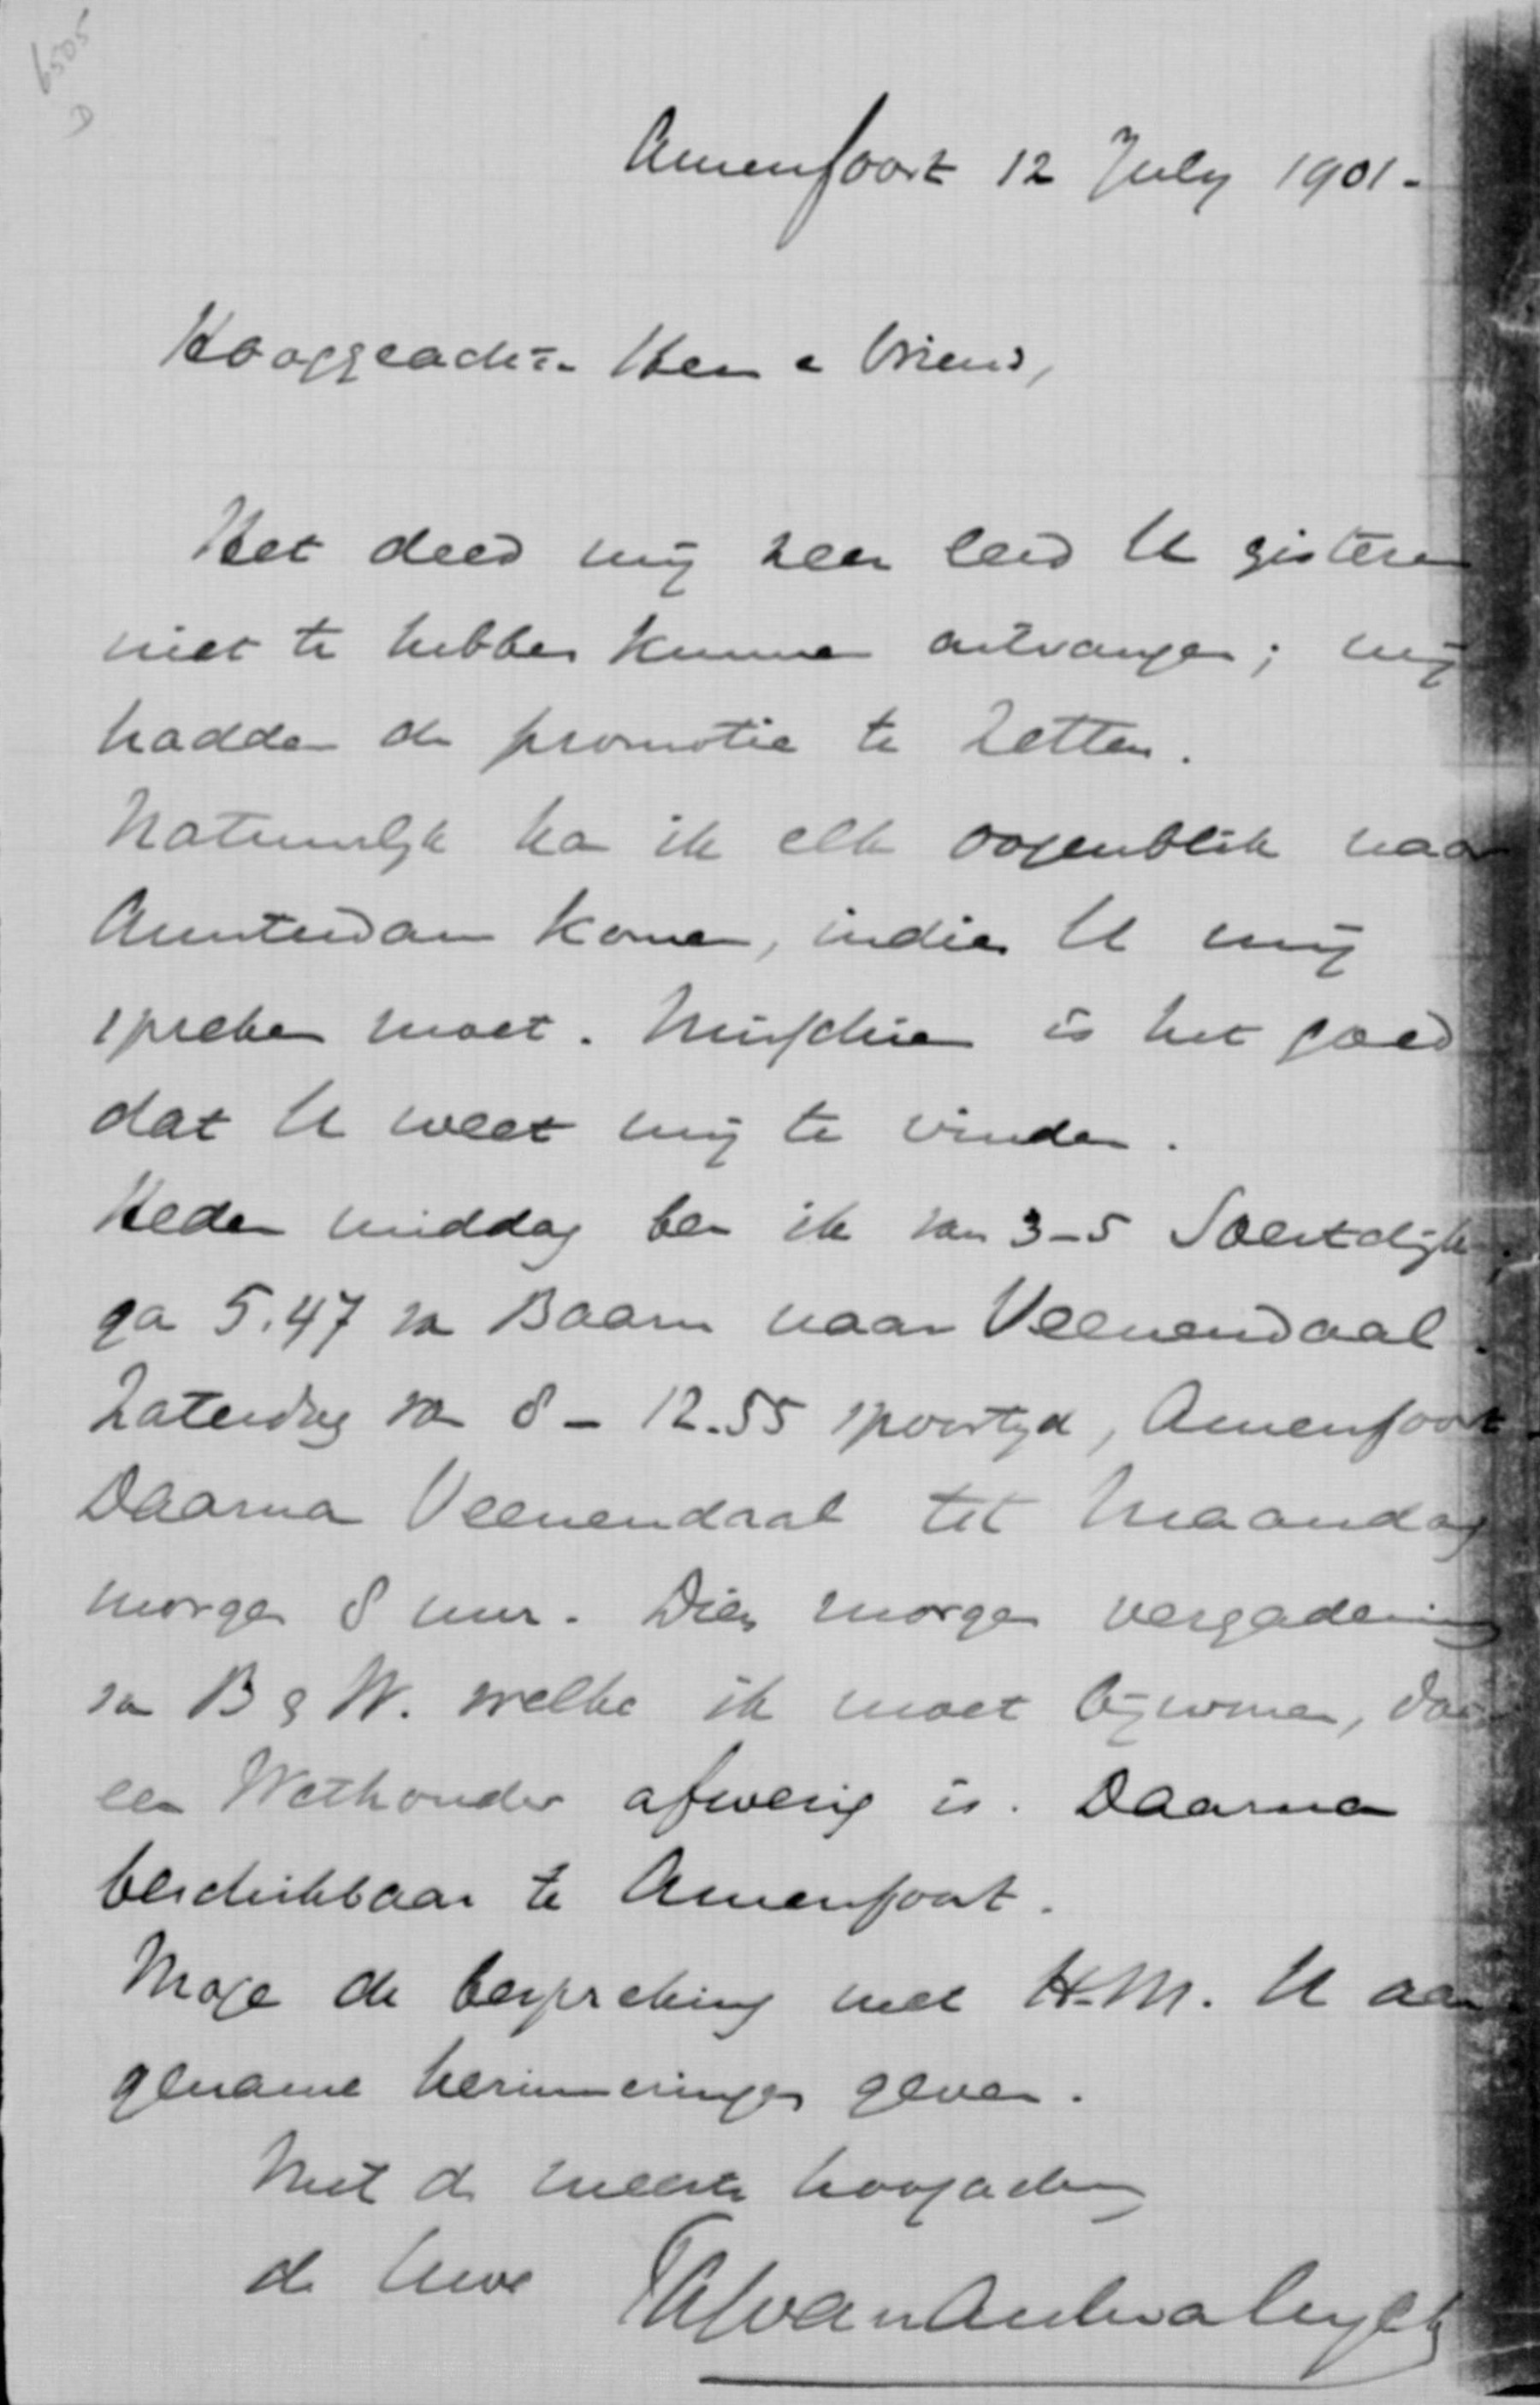 6505
D
Amersfoort 12 July 1901.
Hooggeachte Heer & Vriend,
Het deed mij zeer leed U gisteren
niet te hebben kunnen ontvangen; wij
hadden de promotie te Zetten.
Natuurlijk kan ik elk oogenblik naar
Amsterdam komen, indien U mij
spreken moet. Misschien is het goed
dat U weet mij te vinden.
Heden middag ben ik van 3-5 Soestdijk;
ga 5.47 van Baarn naar Veenendaal.
Zaterdag van 8 - 12.55 spoortijd, Amersfoort.
Daarna Veenendaal tot Maandag
morgen 8 uur. Dien morgen vergadering
van B & W. welke ik moet bijwonen, daar
een Wethouder afwezig is. Daarna
beschikbaar te Amersfoort.
Moge de bespreking met H.M. U aan
gename herinneringen geven.
Met de meeste hoogachting
de Uwe